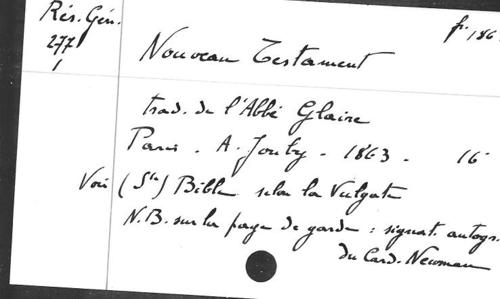 Rés. Gén.
277
1
fr. 186
Nouveau Testament
trad. de l'Abbé Glaire
Paris . A. Jouby . 1863 . 16°
Voir (Ste) Bible selon la Vulgate
N.B. sur la page de garde : signat. autogr.
du Card. Newman